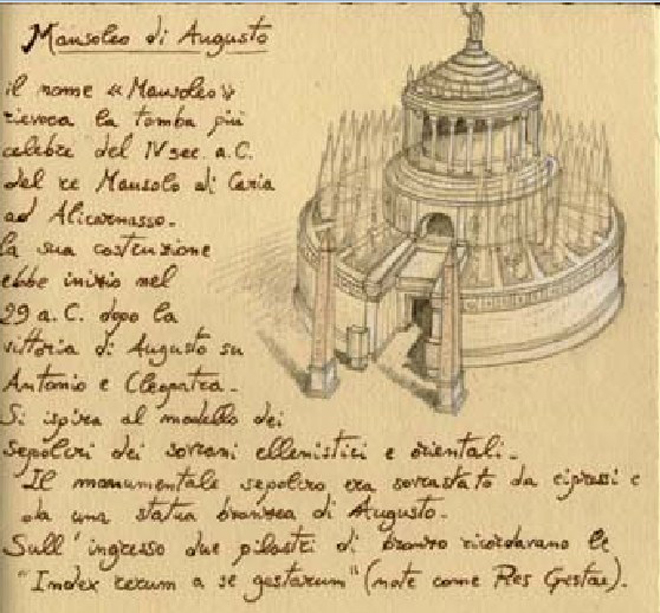 Mausoleo di Augusto
il nome «Mausoleo»
rievoca la tomba più
celebre del IV sec. a.C.
del re Mausolo di Caria
ad Alicarnasso.
la sua costruzione
ebbe inizio nel
29 a.C. dopo la
vittoria di Augusto su
Antonio e Cleopatra.
Si ispira al modello dei
sepolcri dei sovrani ellenistici e orientali.
Il monumentale sepolcro era sovrastato da cipressi e
da una statua bronzea di Augusto.
Sull'ingresso due pilastri di bronzo ricordavano le
"Index rerum a se gestarum" (note come Res Gestae).